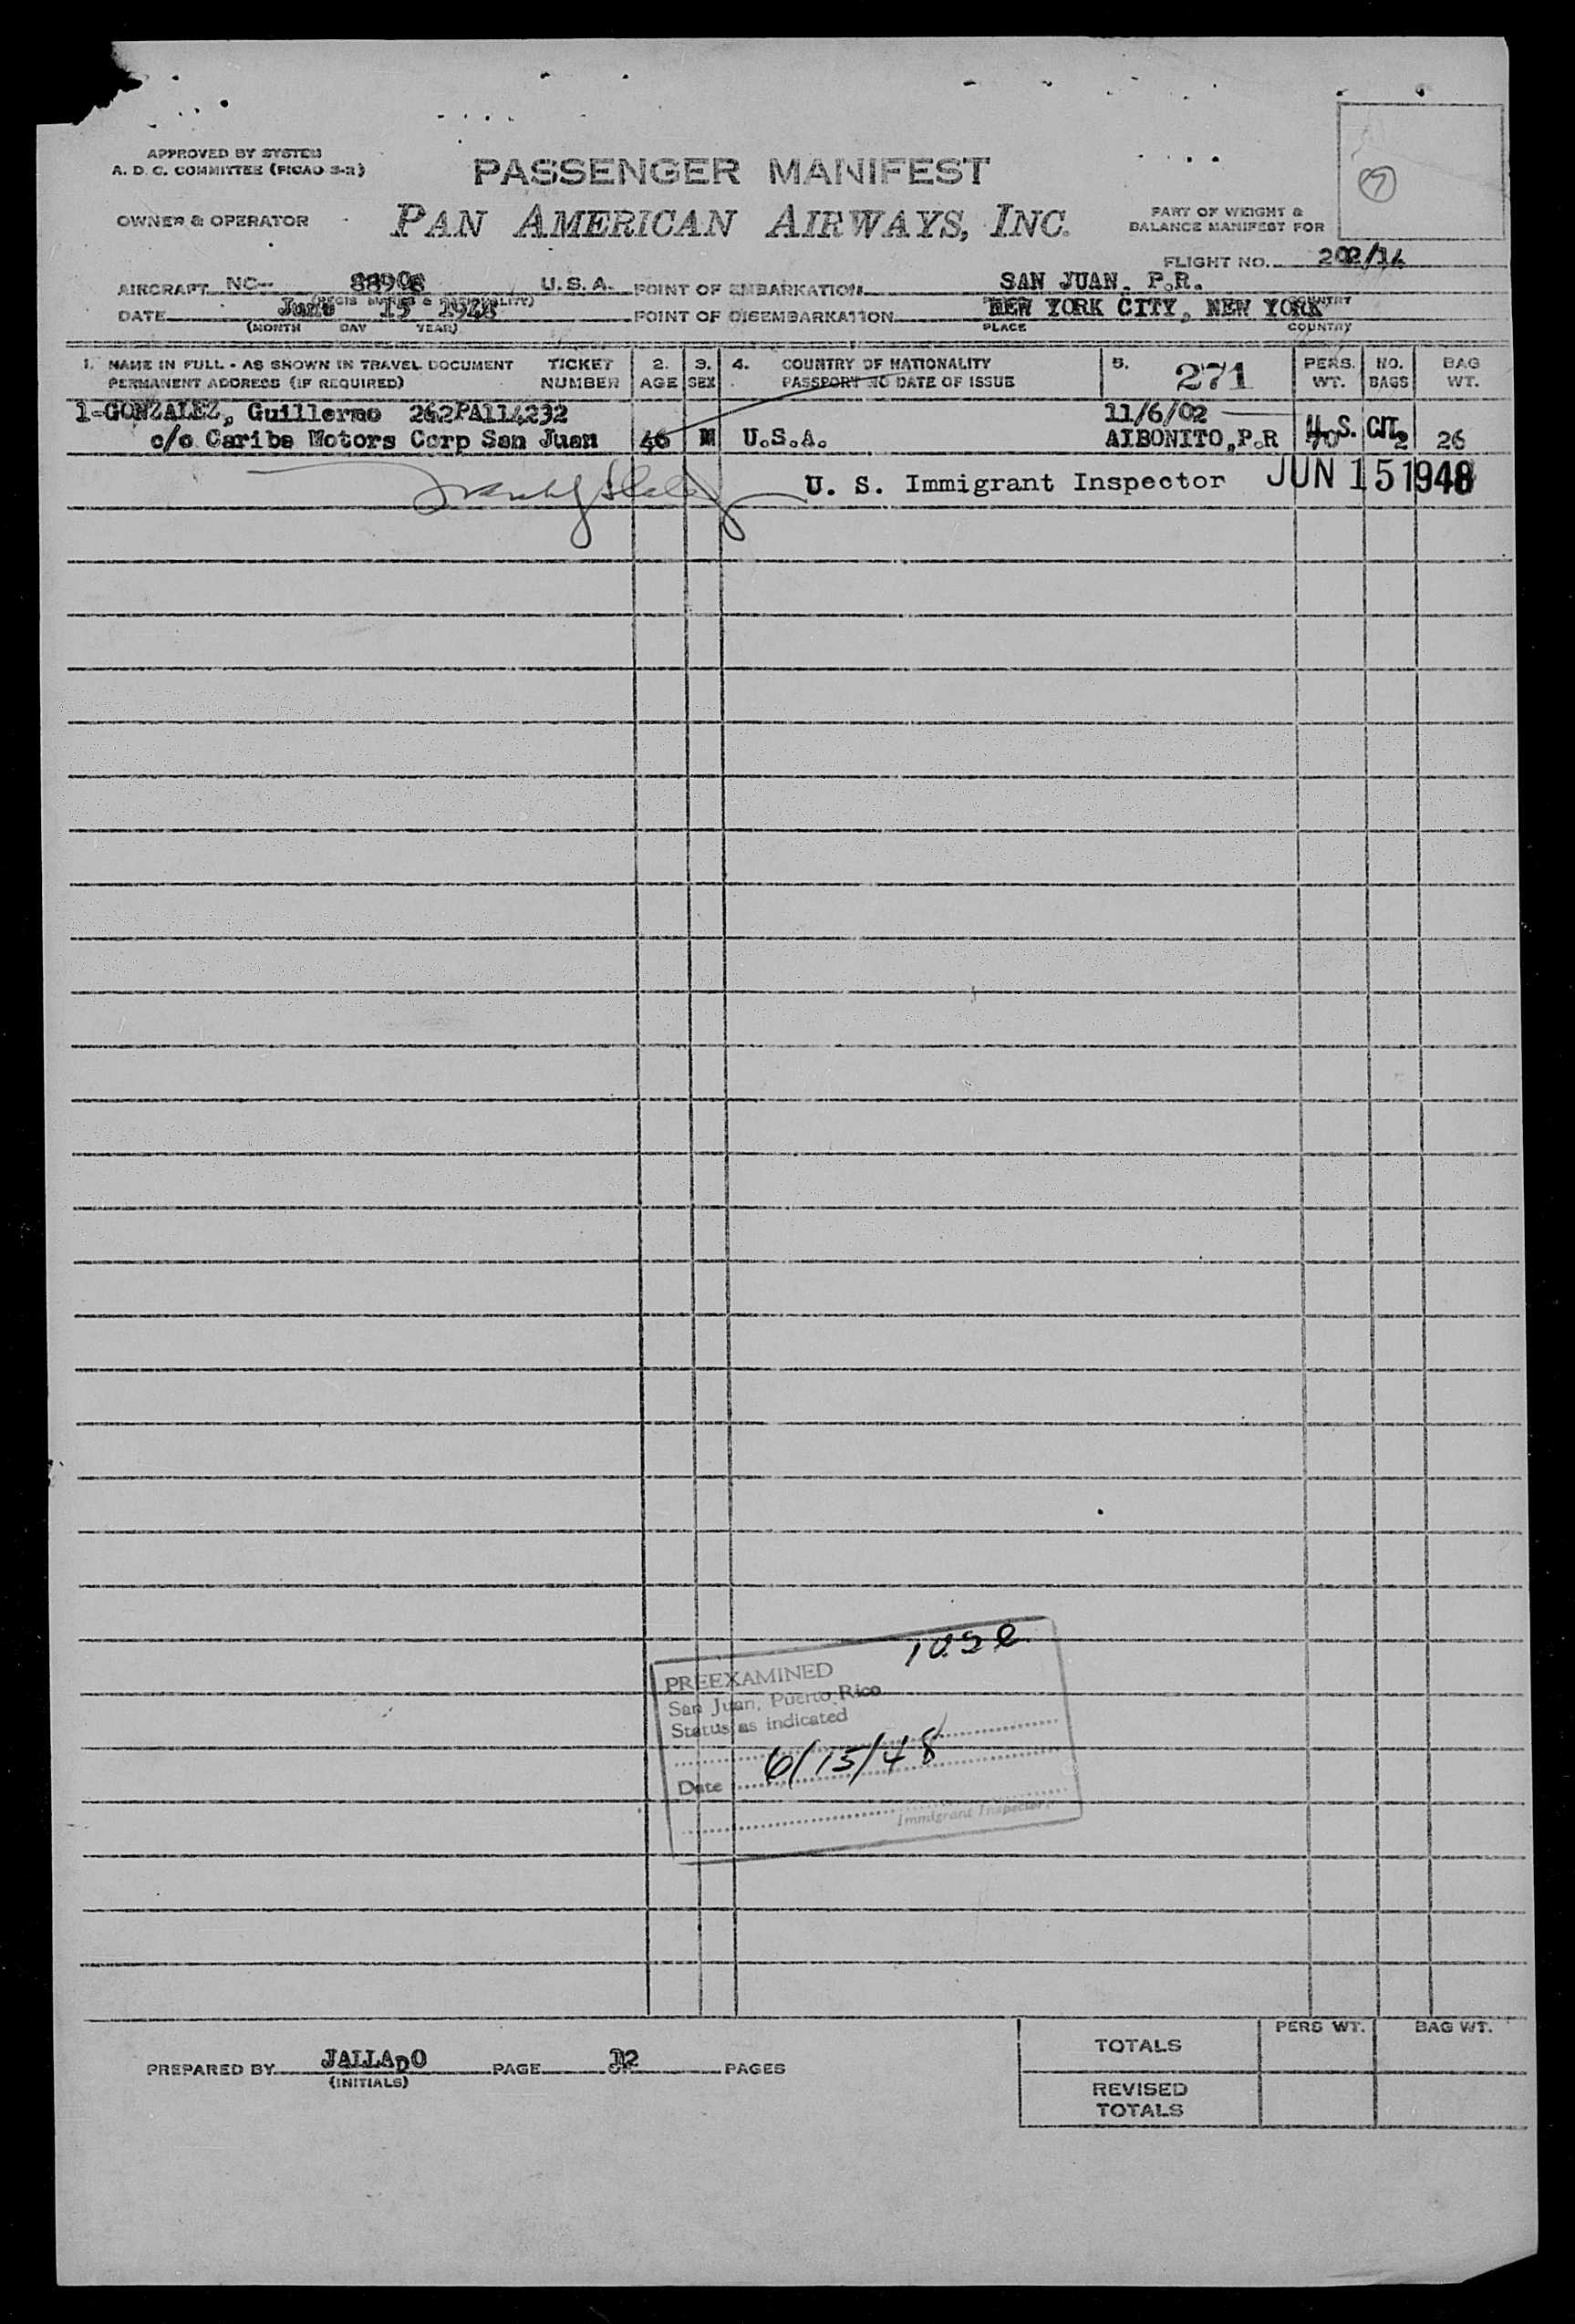 APPROVED BY SYSTEM
A. D. C. COMMITTEE (PICAO S-2)
PASSENGER MANIFEST
7
OWNER & OPERATOR
PAN AMERICAN AIRWAYS, INC.
PART OF WEIGHT &
BALANCE MANIFEST FOR
FLIGHT NO. 202/14
AIRCRAFT NC-- 88908 U. S. A. POINT OF EMBARKATION SAN JUAN, P.R.
DATE June 15 1948 POINT OF DISEMBARKATION NEW YORK CITY, NEW YORK
(MONTH DAY YEAR) PLACE COUNTRY
1. NAME IN FULL - AS SHOWN IN TRAVEL DOCUMENT TICKET 2. 3. 4. COUNTRY OF NATIONALITY 5. 271 PERS. NO. BAG
PERMANENT ADDRESS (IF REQUIRED) NUMBER AGE SEX PASSPORT NO DATE OF ISSUE WT. BAGS WT.
1-GONZALEZ, Guillermo 262PA114232 11/6/02
c/o Caribe Motors Corp San Juan 46 M U.S.A. AIBONITO,P.R U.S. CIT. 2 26
U. S. Immigrant Inspector JUN 15 1948
PREEXAMINED
San Juan, Puerto Rico
Status as indicated
Date 6/15/48
Immigrant Inspector.
PERS WT. BAG WT.
TOTALS
PREPARED BY JALLADO PAGE 12 PAGES
(INITIALS)
REVISED
TOTALS